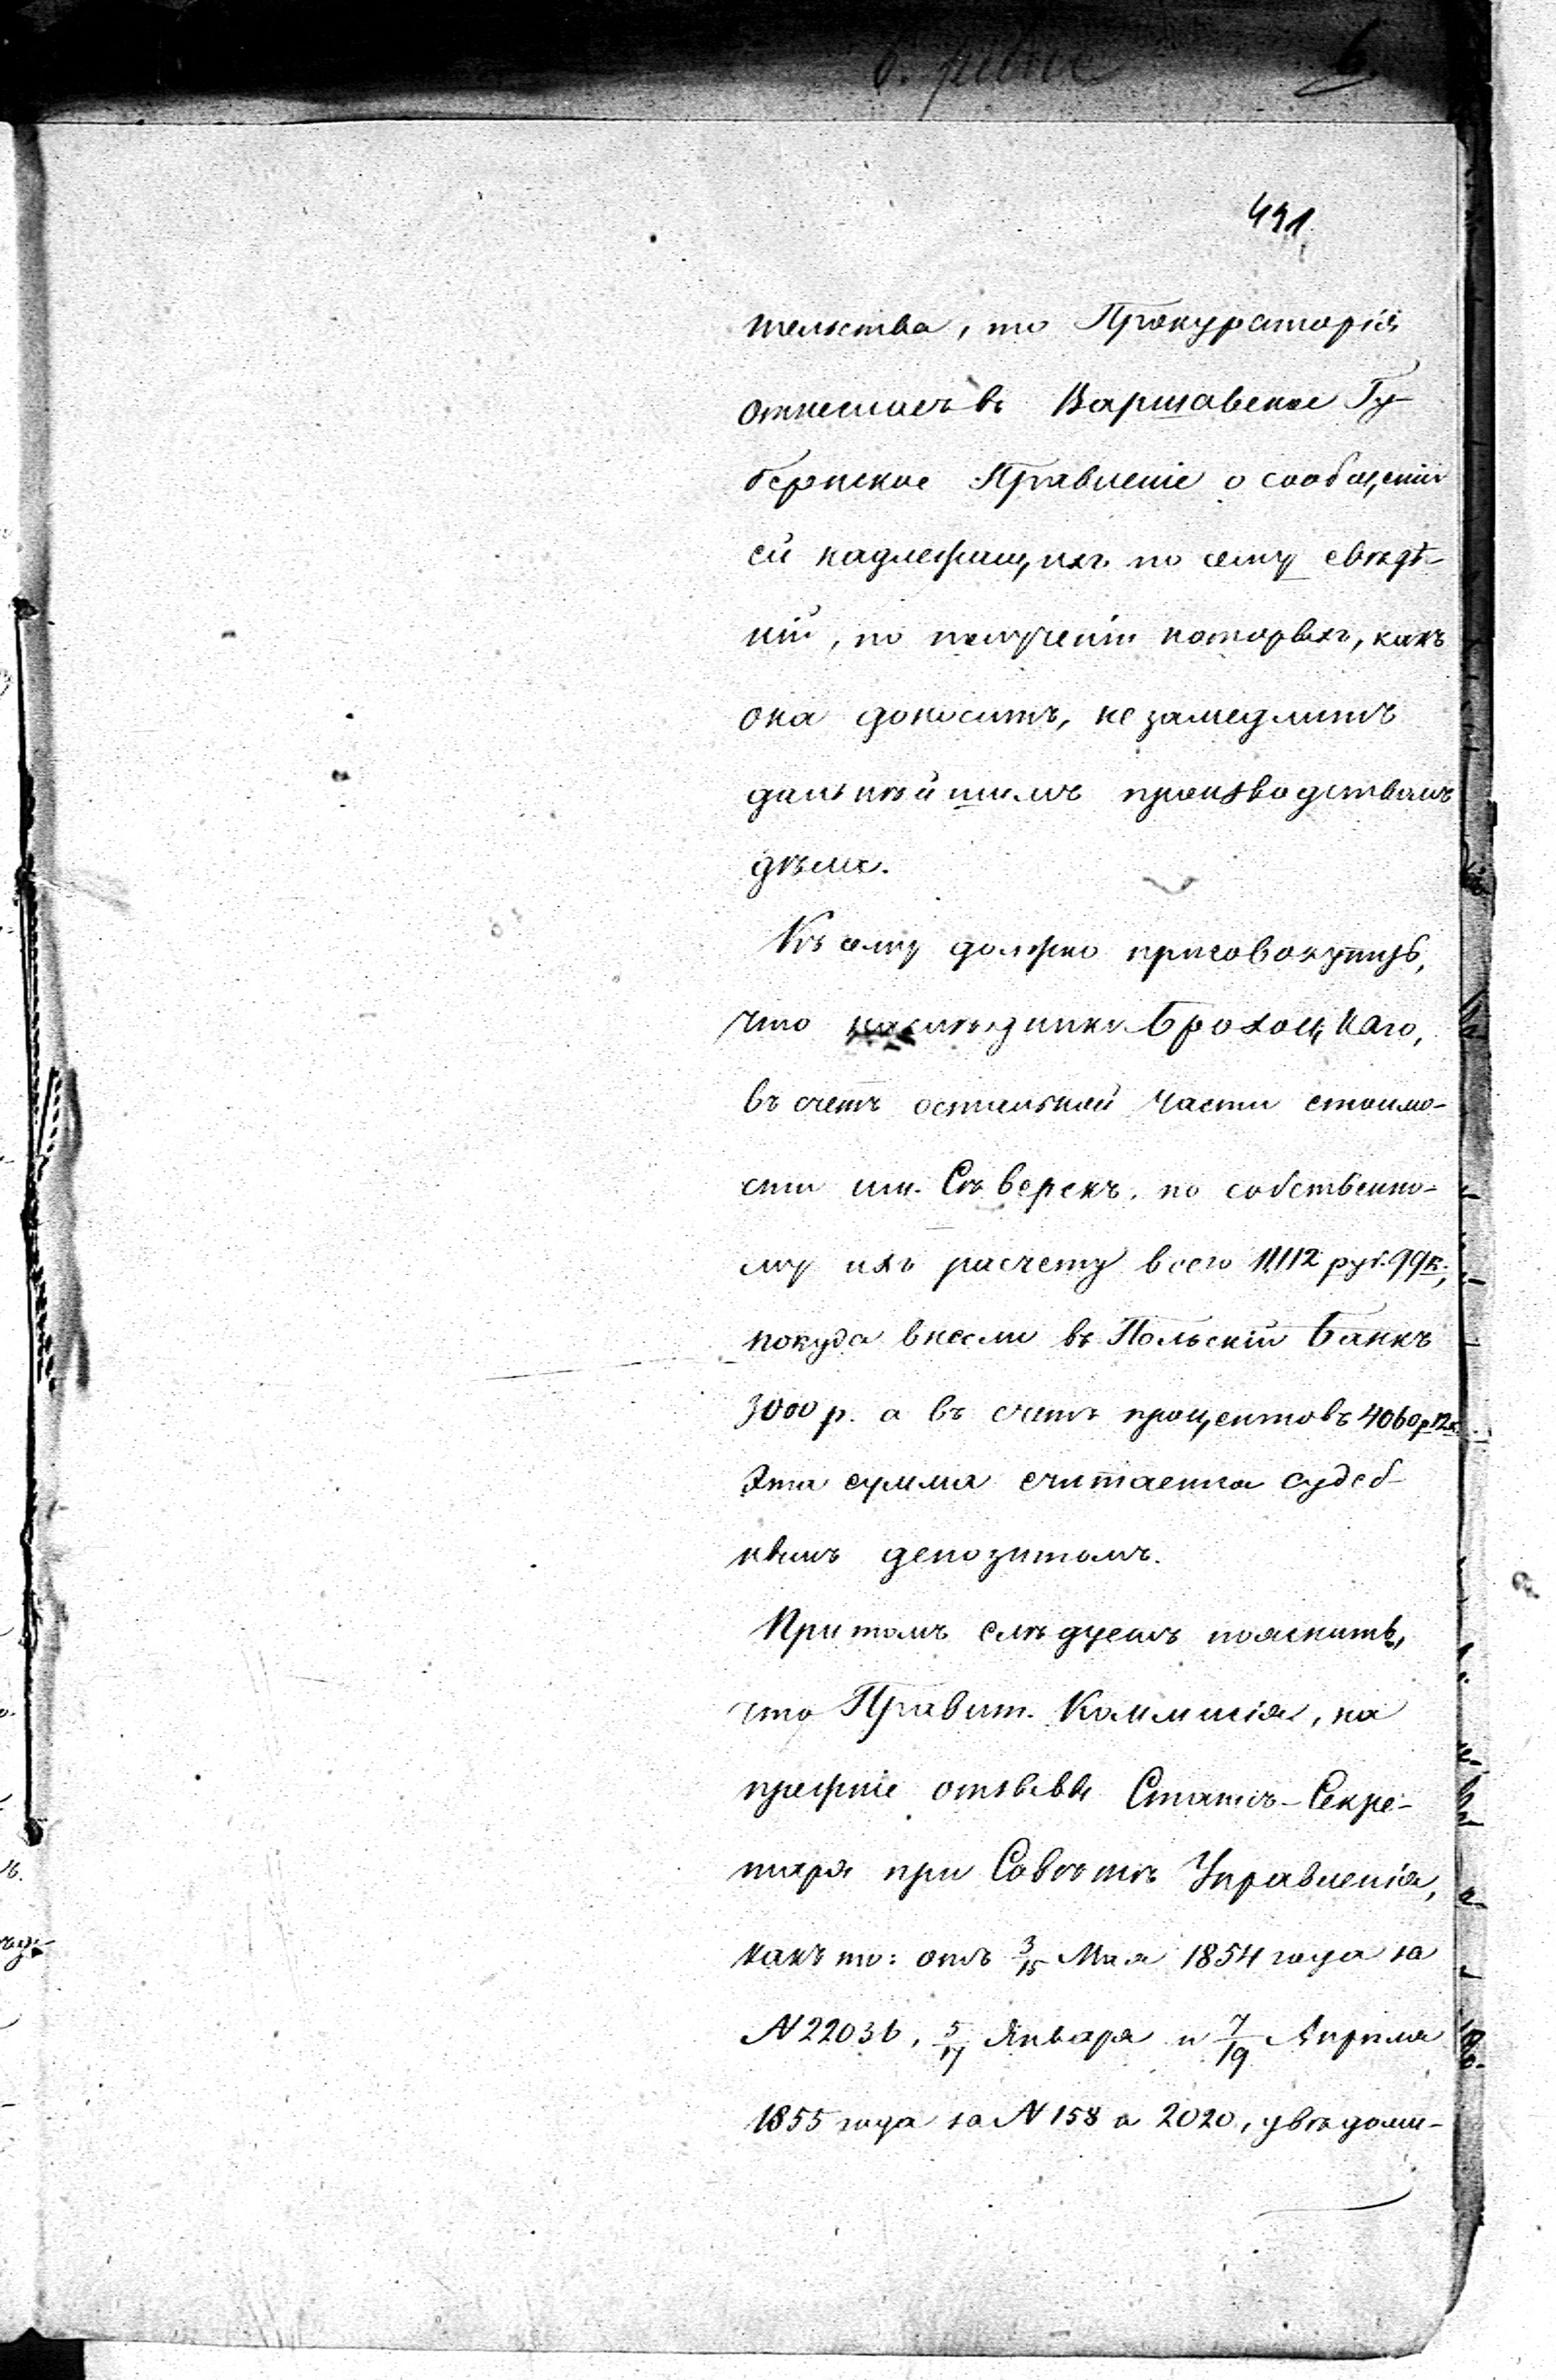 491
тельства, то Прокураторія
отнеслась въ Варшавское Гу-
бернское Правленіе о сообщеніи
ей надлежащихъ по сему свѣдѣ-
ній, по полученіи которыхъ, какъ
она доноситъ, не замедлитъ
дальнѣйшимъ производствомъ
дѣла.
Къ сему должно присовокупить,
что наслѣдники Брохоцкаго,
въ счетъ остальной части стоимо-
сти им. Сѣверскъ, по собственно-
му ихъ расчету всего 11112 руб. 99 к.,
покуда внесли въ Польскій Банкъ
3000 р. а въ счетъ процентовъ 4060 р 12 к.
Эта сумма считается судеб-
нымъ депозитомъ.
Притомъ слѣдуетъ пояснить,
что Правит. Коммисія, на
прежніе отзывы Статсъ-Секре-
таря при Совѣтѣ Управленія,
какъ то: отъ 3/15 Мая 1854 года за
N 22036, 5/17 Января и 7/19 Апрѣля
1855 года за N 158 и 2020, увѣдоми-